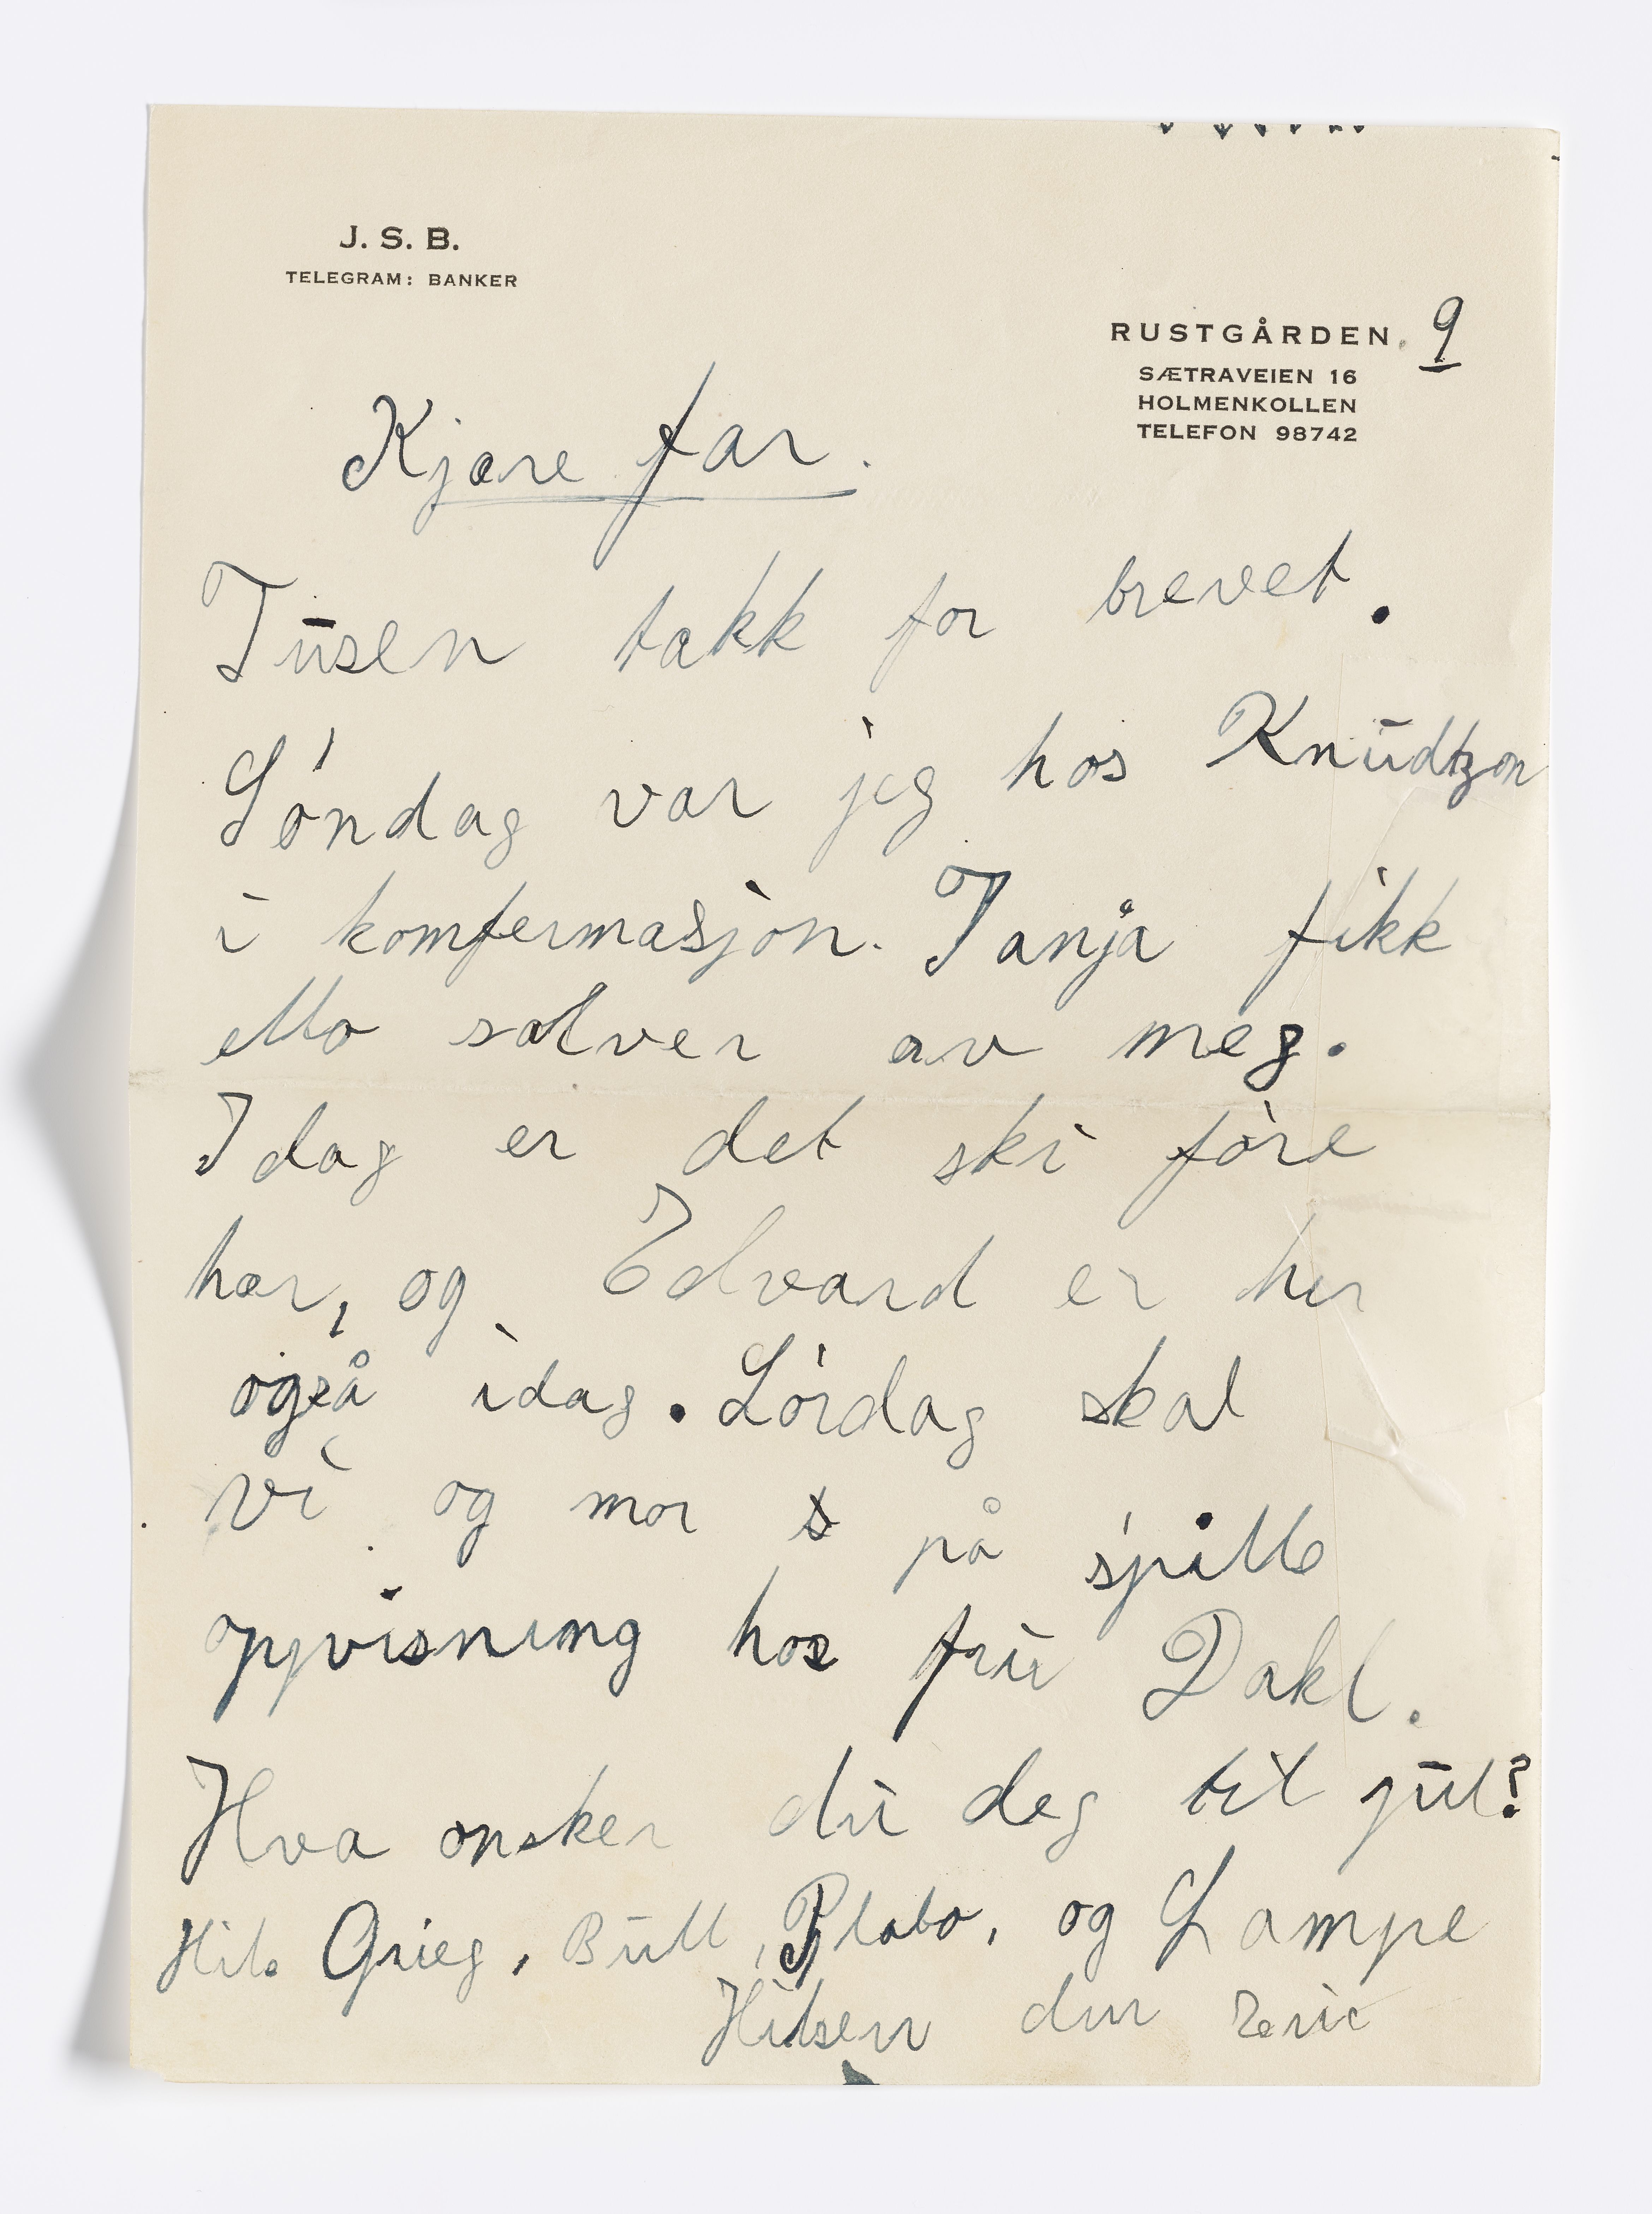 J. S. B.
TELEGRAM: BANKER
RUSTGÅRDEN. 9
SÆTRAVEIEN 16
HOLMENKOLLEN
TELEFON 98742
Kjære far.
Tūsen takk for brevet.
Søndag var jeg hos Knūdtzon
i komfermasjon. Tanja fikk
ello sølver av meg.
I dag er det ski føre
hær, og Edvard er her
også idag. Lørdag skal
vi og mor på spille
oppvisning hos frū Dakl.
Hva ønsker dū deg til jūl?
Hils Grieg, Būll, Plato, og Lampe
Hilsen din